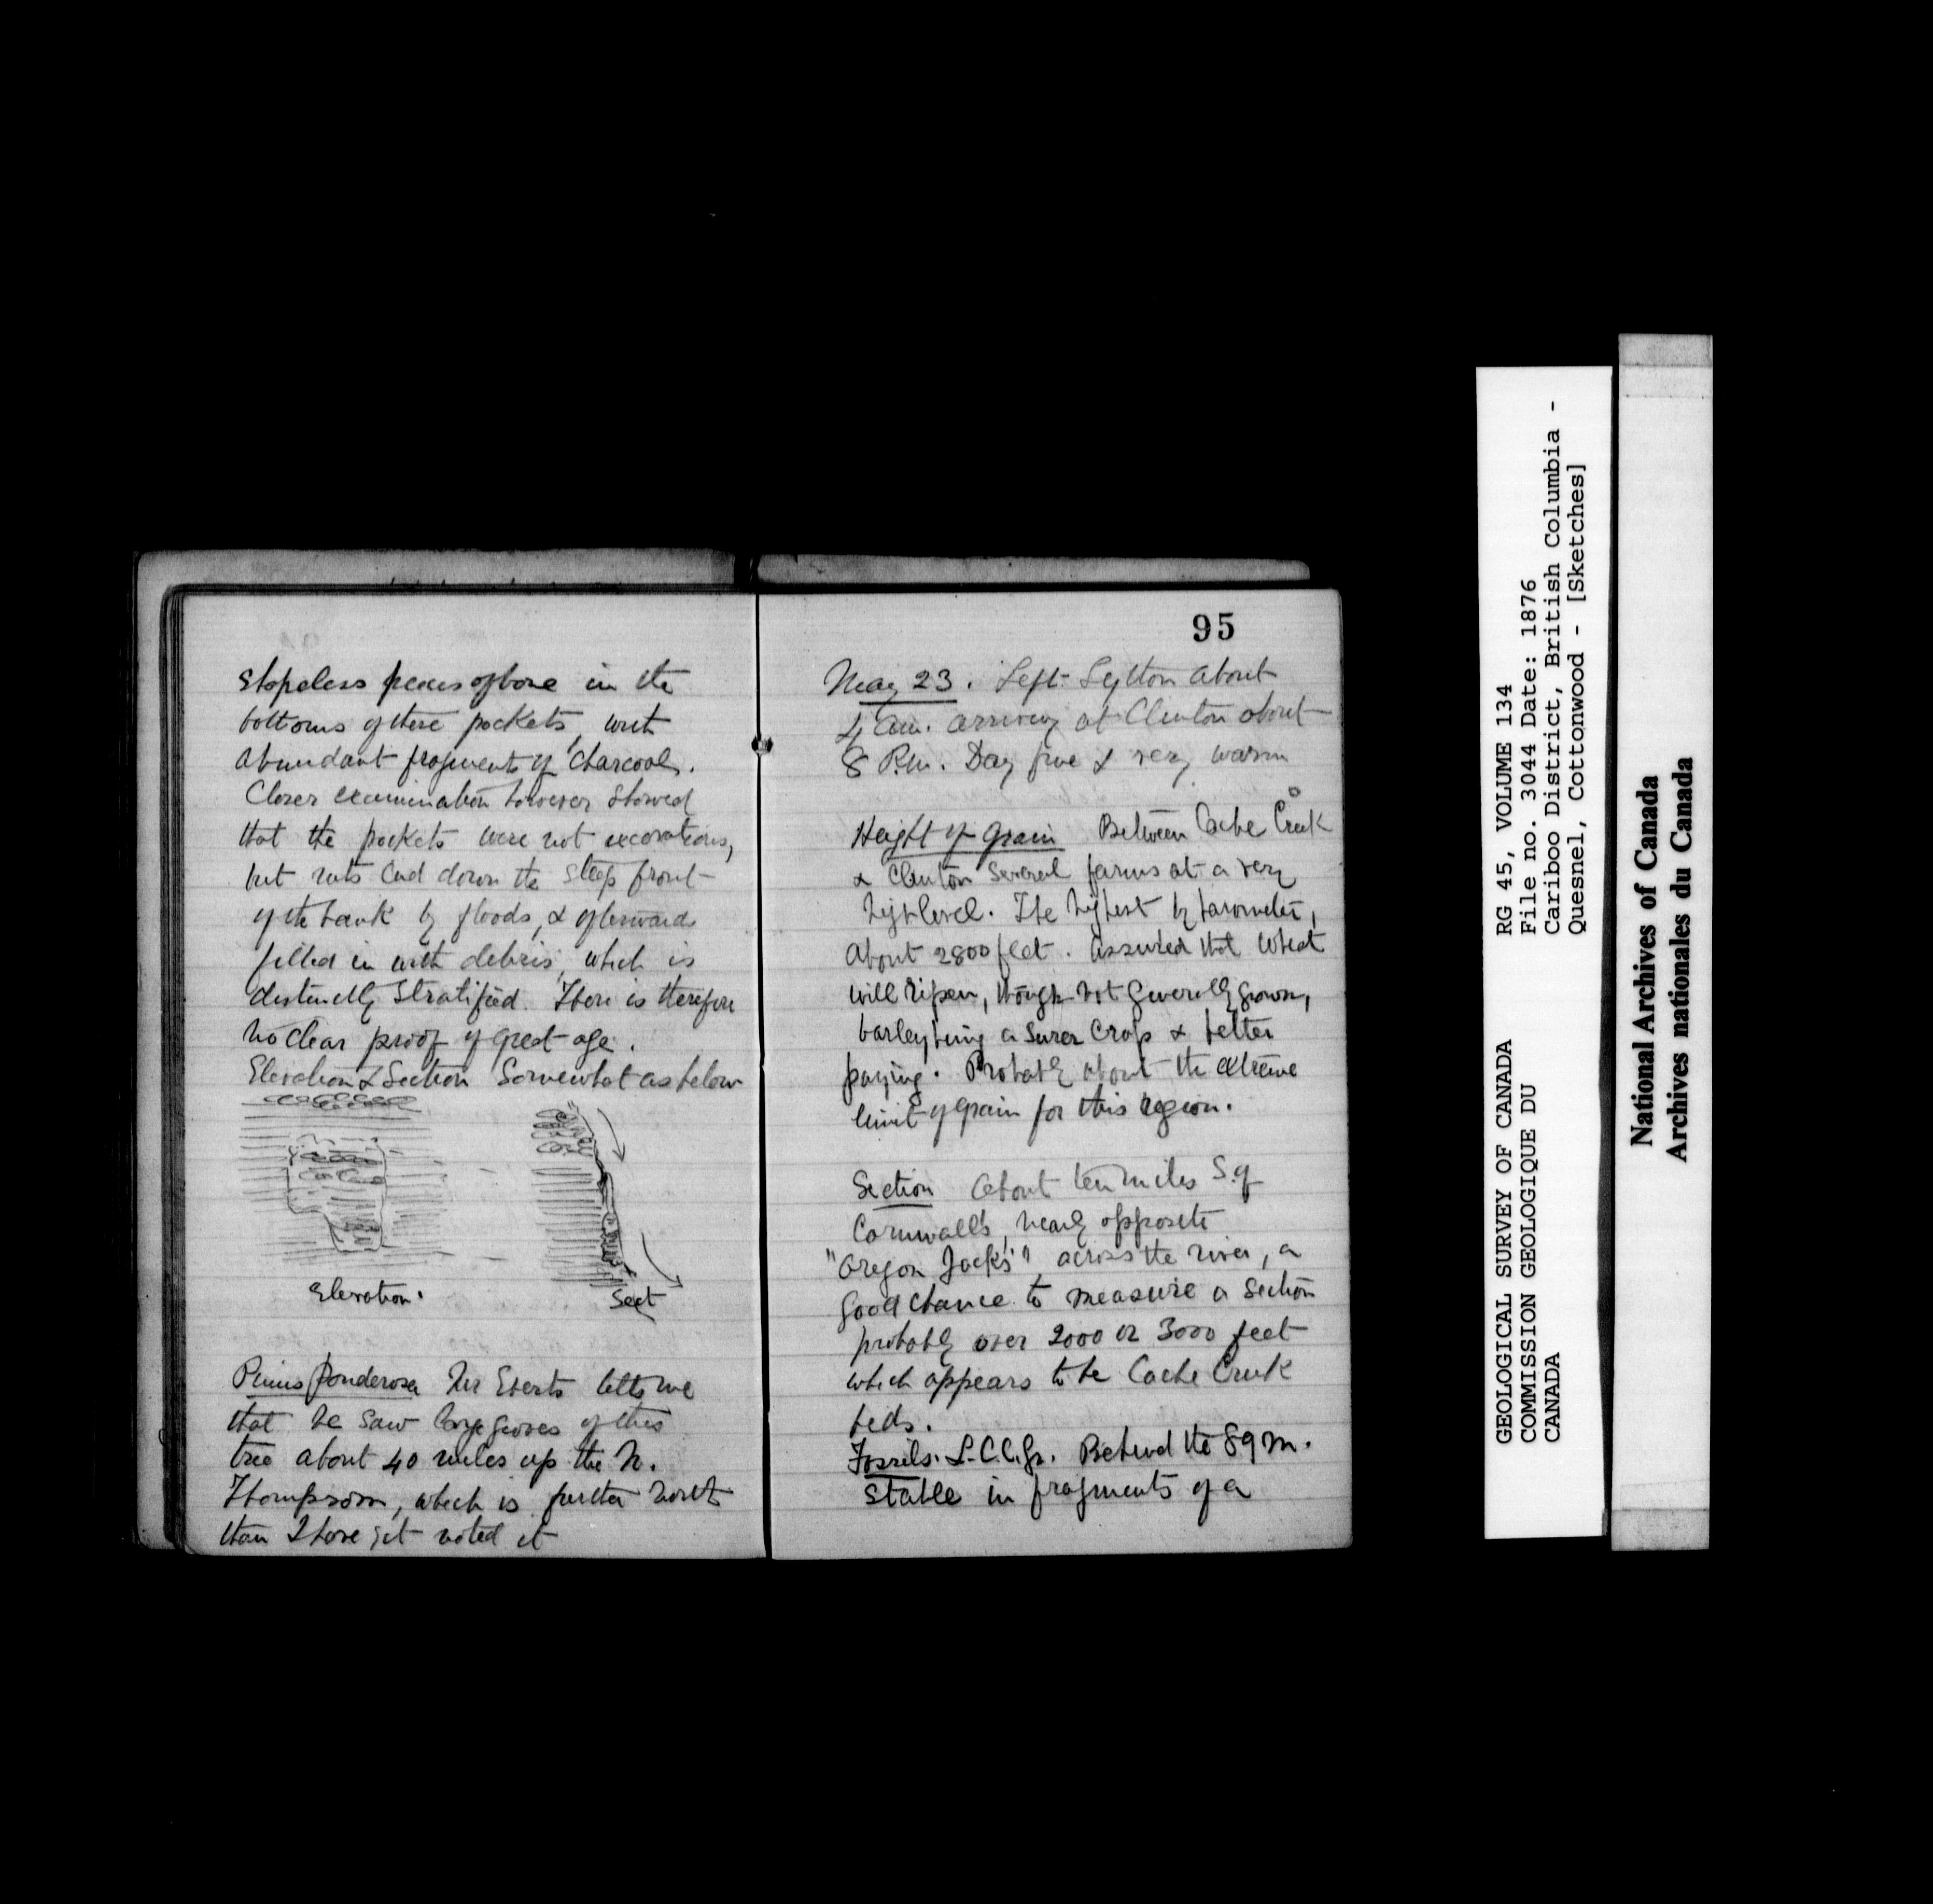 shapeless pieces of bone in the
bottoms of these pockets, with
abundant fragments of charcoal.
Closer examination however showed
that the pockets were not excavations,
but ruts cut down the steep front
of the bank by floods, & afterwards
filled in with debris, which is
distinctly stratified. There is therefore
no clear proof of great age.
Elevation & Section Somewhat as below
Elevation.
Sect
Pinus ponderosa Mr Eberts tells me
that he saw large groves of this
tree about 40 miles up the N.
Thompson, which is further north
than I have yet noted it
95
May 23. Left Lytton about
4 am. arriving at Clinton about
8 P.m. Day fine & very warm
Height of grain Between Cache Creek
& Clinton Several farms at a very
high level. The highest by barometer,
about 2800 feet. Assured that wheat
will ripen, though not generally grown,
barley being a surer crop & better
paying. Probably about the extreme
limit of grain for this region.
Section About ten miles S. of
Cornwalls, nearly opposite
"Oregon Jacks", across the river, a
good chance to measure a section
probably over 2000 or 3000 feet
which appears to be Cache Creek
beds.
Fossils. L.C.C.Gr. Behind the 89 m.
stable in fragments of a
GEOLOGICAL SURVEY OF CANADA
COMMISSION GEOLOGIQUE DU
CANADA
RG 45, VOLUME 134
File no. 3044 Date: 1876
Cariboo District, British Columbia -
Quesnel, Cottonwood - [Sketches]
National Archives of Canada
Archives nationales du Canada